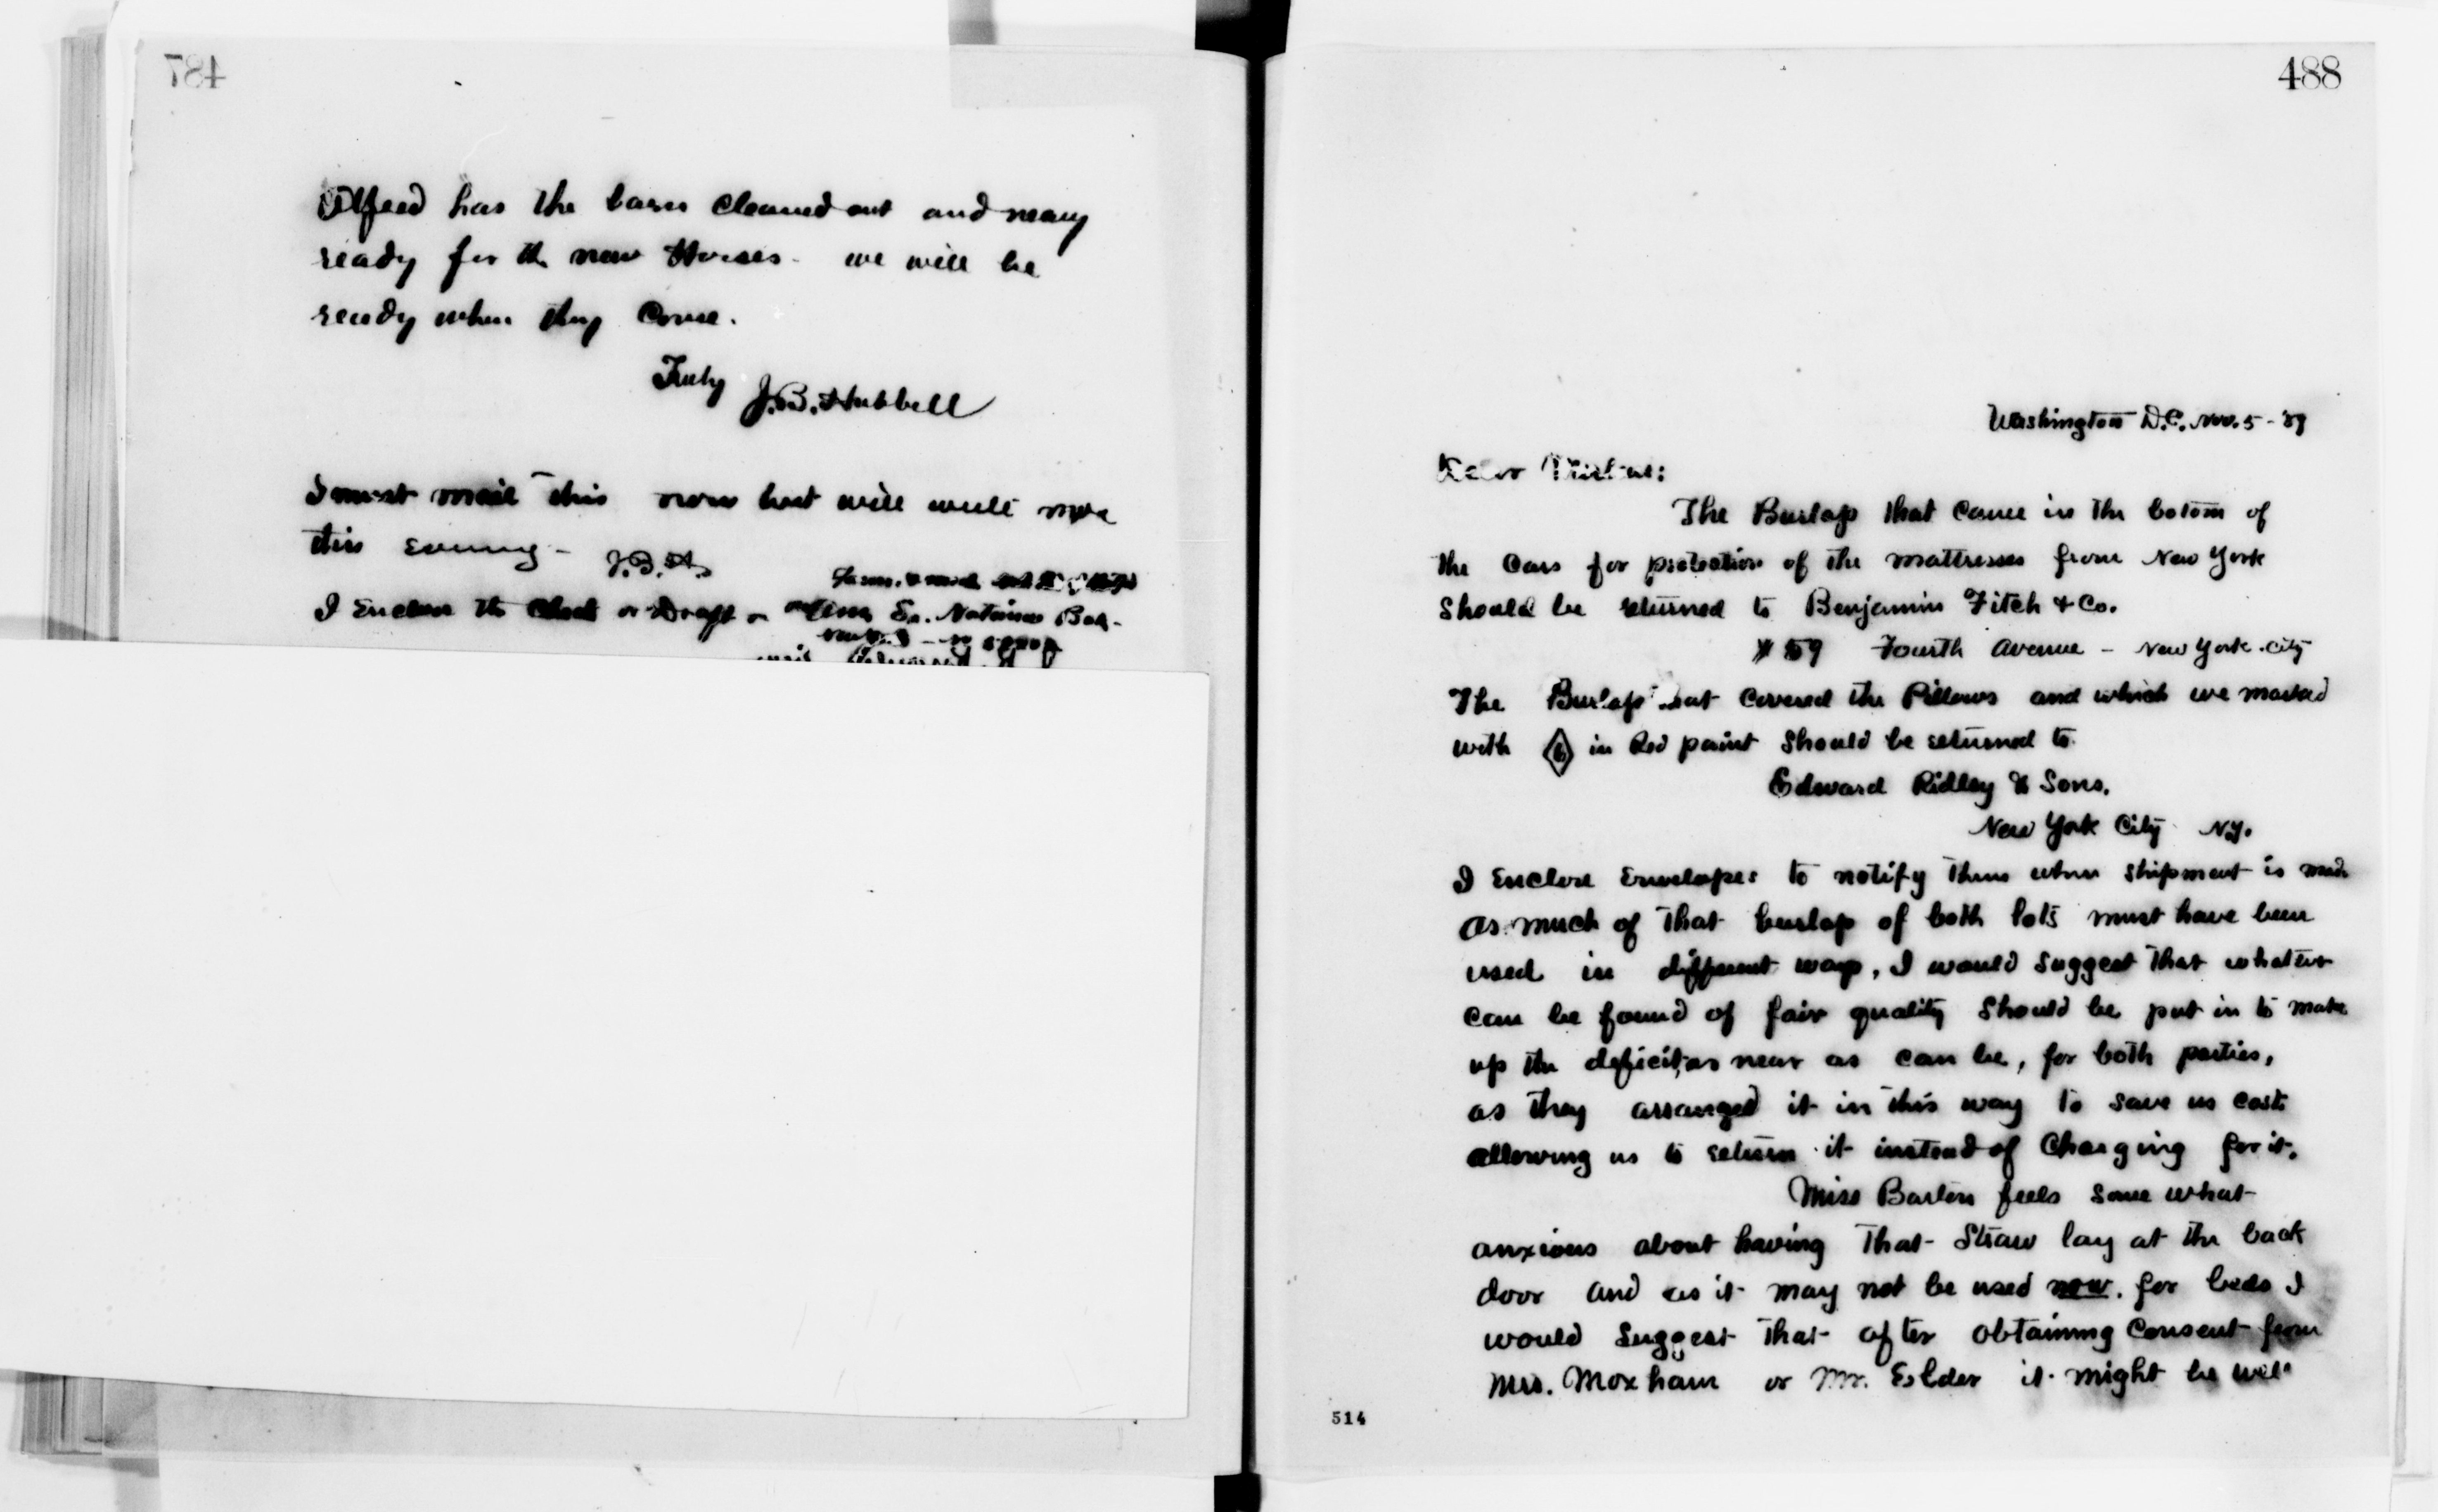 487
Alfred has the barn cleaned out and nearly
ready for the new Horses. we will be
ready when they Come.
Truly J.B. Hubbell
I must mail this now but will write more
this evening - J.B.H.
I Enclose the Check or Draft on
488
Washington D.C. Nov. 5 - '89
Dear
The Burlap that Came in the botom of
the Cars for protection of the mattresses from New York
Should be returned to Benjamin Fitch & Co.
# 59 Fourth Avenue - New York City
The Burlap that Covered the Pillows and which we marked
with in Red paint Should be returned to
Edward Ridley & Sons.
New York City N.Y.
I Enclose Envelopes to notify them when Shipment is made
as much of that burlap of both lots must have been
used in different ways, I would Suggest that whatever
can be found of fair quality Should be put in to make
up the deficit, as near as can be, for both parties,
as they arranged it in this way to Save us Costs
allowing us to return it instead of Charging for it.
Miss Barton feels Some what
anxious about having that Straw lay at the back
door and as it may not be used now. for beds I
would Suggest that after obtaining Consent from
Mrs. Moxham or Mr. Elder it might be well
514